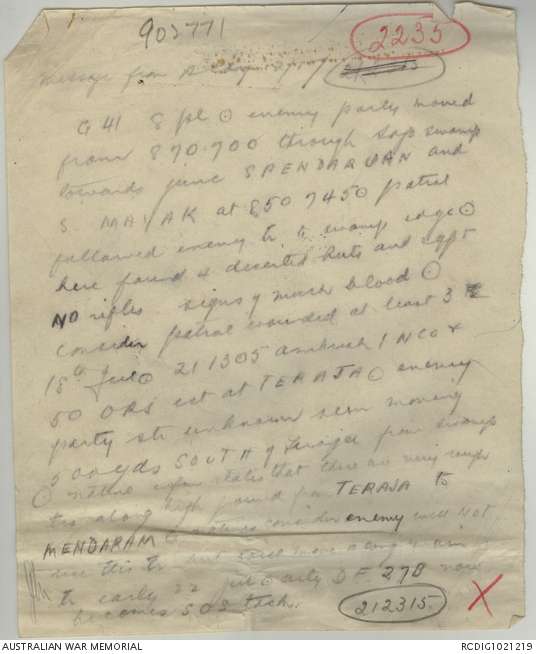 902771
2235
Message from
G 41 8 pl ⊙ enemy party moved
from 870.700 through Sago swamp
towards junc S PENDARUAN and
S MALAK at 850 7450 patrol
followed enemy to swamp edge ⊙
here found 4 deserted huts and
NO rifles signs of much blood ⊙
consider patrol wounded at least 3
18th Jul ⊙ 211305 ambush 1 NCO &
50 ORS est at TERAJA ⊙ enemy
party str unknown seen moving
500 yds SOUTH of Teraja from swamps
⊙ native states that there are
along high ground from TERAJA to
MENDARAM consider enemy will NOT
use this but will move along main
tk early 22 Jul ⊙ DF 27B now
becomes SOS task.
212315
X
AUSTRALIAN WAR MEMORIAL
RCDIG1021219